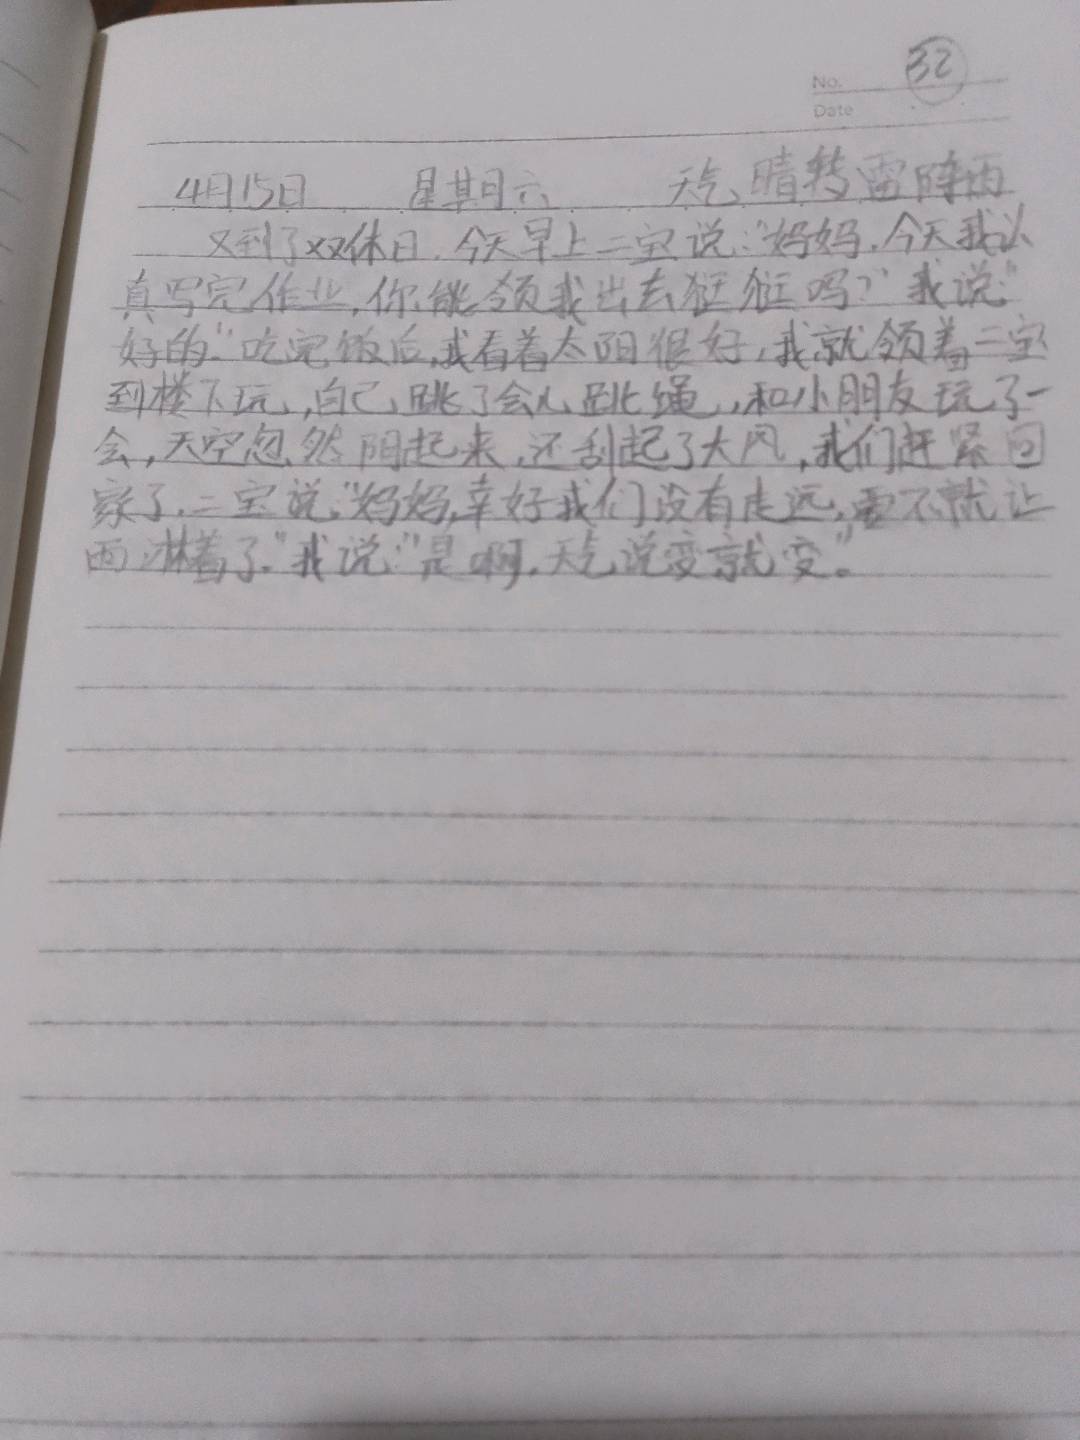 No. 32
Date
4月15日 星期六 天气、晴转雷阵雨
又到了双休日.今天早上二宝说:“妈妈.今天我认
真写完作业,你能领我出去逛逛吗?”我说“
好的.”吃完饭后,我看着太阳很好,我就领着二宝
到楼下玩,自己跳了会儿跳绳,和小朋友玩了一
会,天空忽然阴起来,还刮起了大风,我们赶紧回
家了.二宝说:“妈妈,幸好我们没有走远,要不就让
雨淋着了.”我说:“是啊.天气说变就变。”